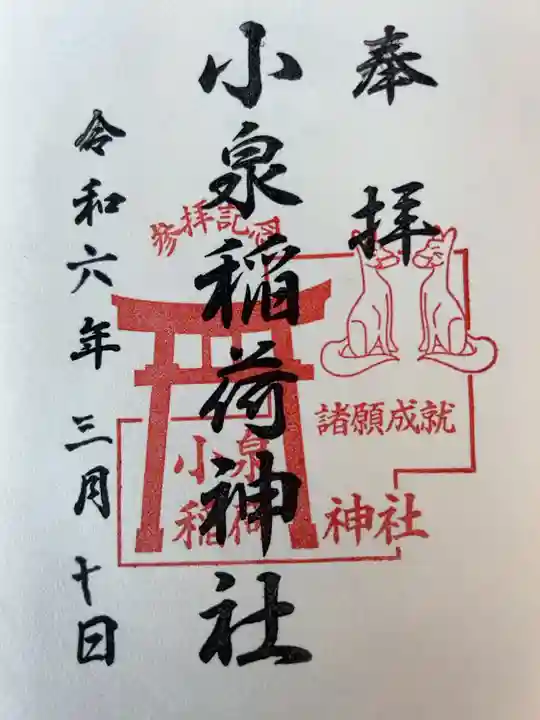 奉拝
小泉稲荷神社
令和六年三月十日
参拝記念
諸願成就
小泉
稲荷神社